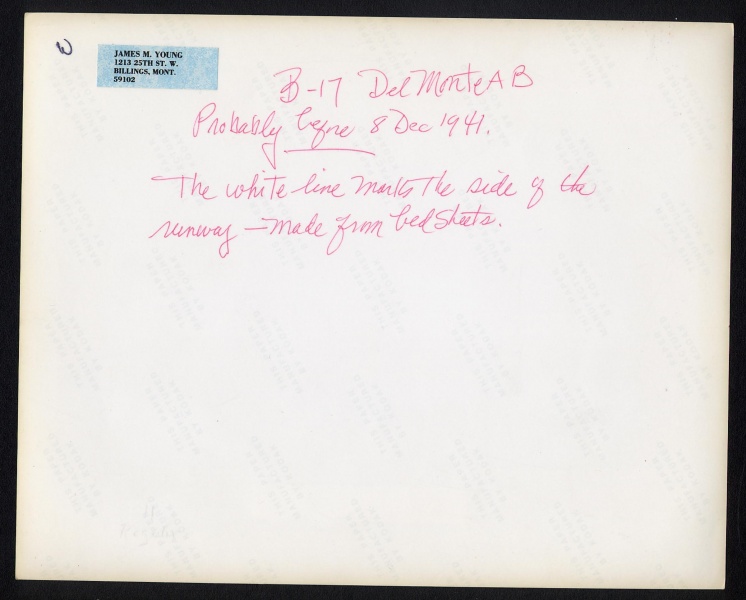 W
JAMES M. YOUNG
1213 25TH ST. W.
BILLINGS, MONT.
59102
B-17 Del Monte A B
Probably before 8 Dec 1941.
The white line marks the side of the
runway – made from bed sheets.